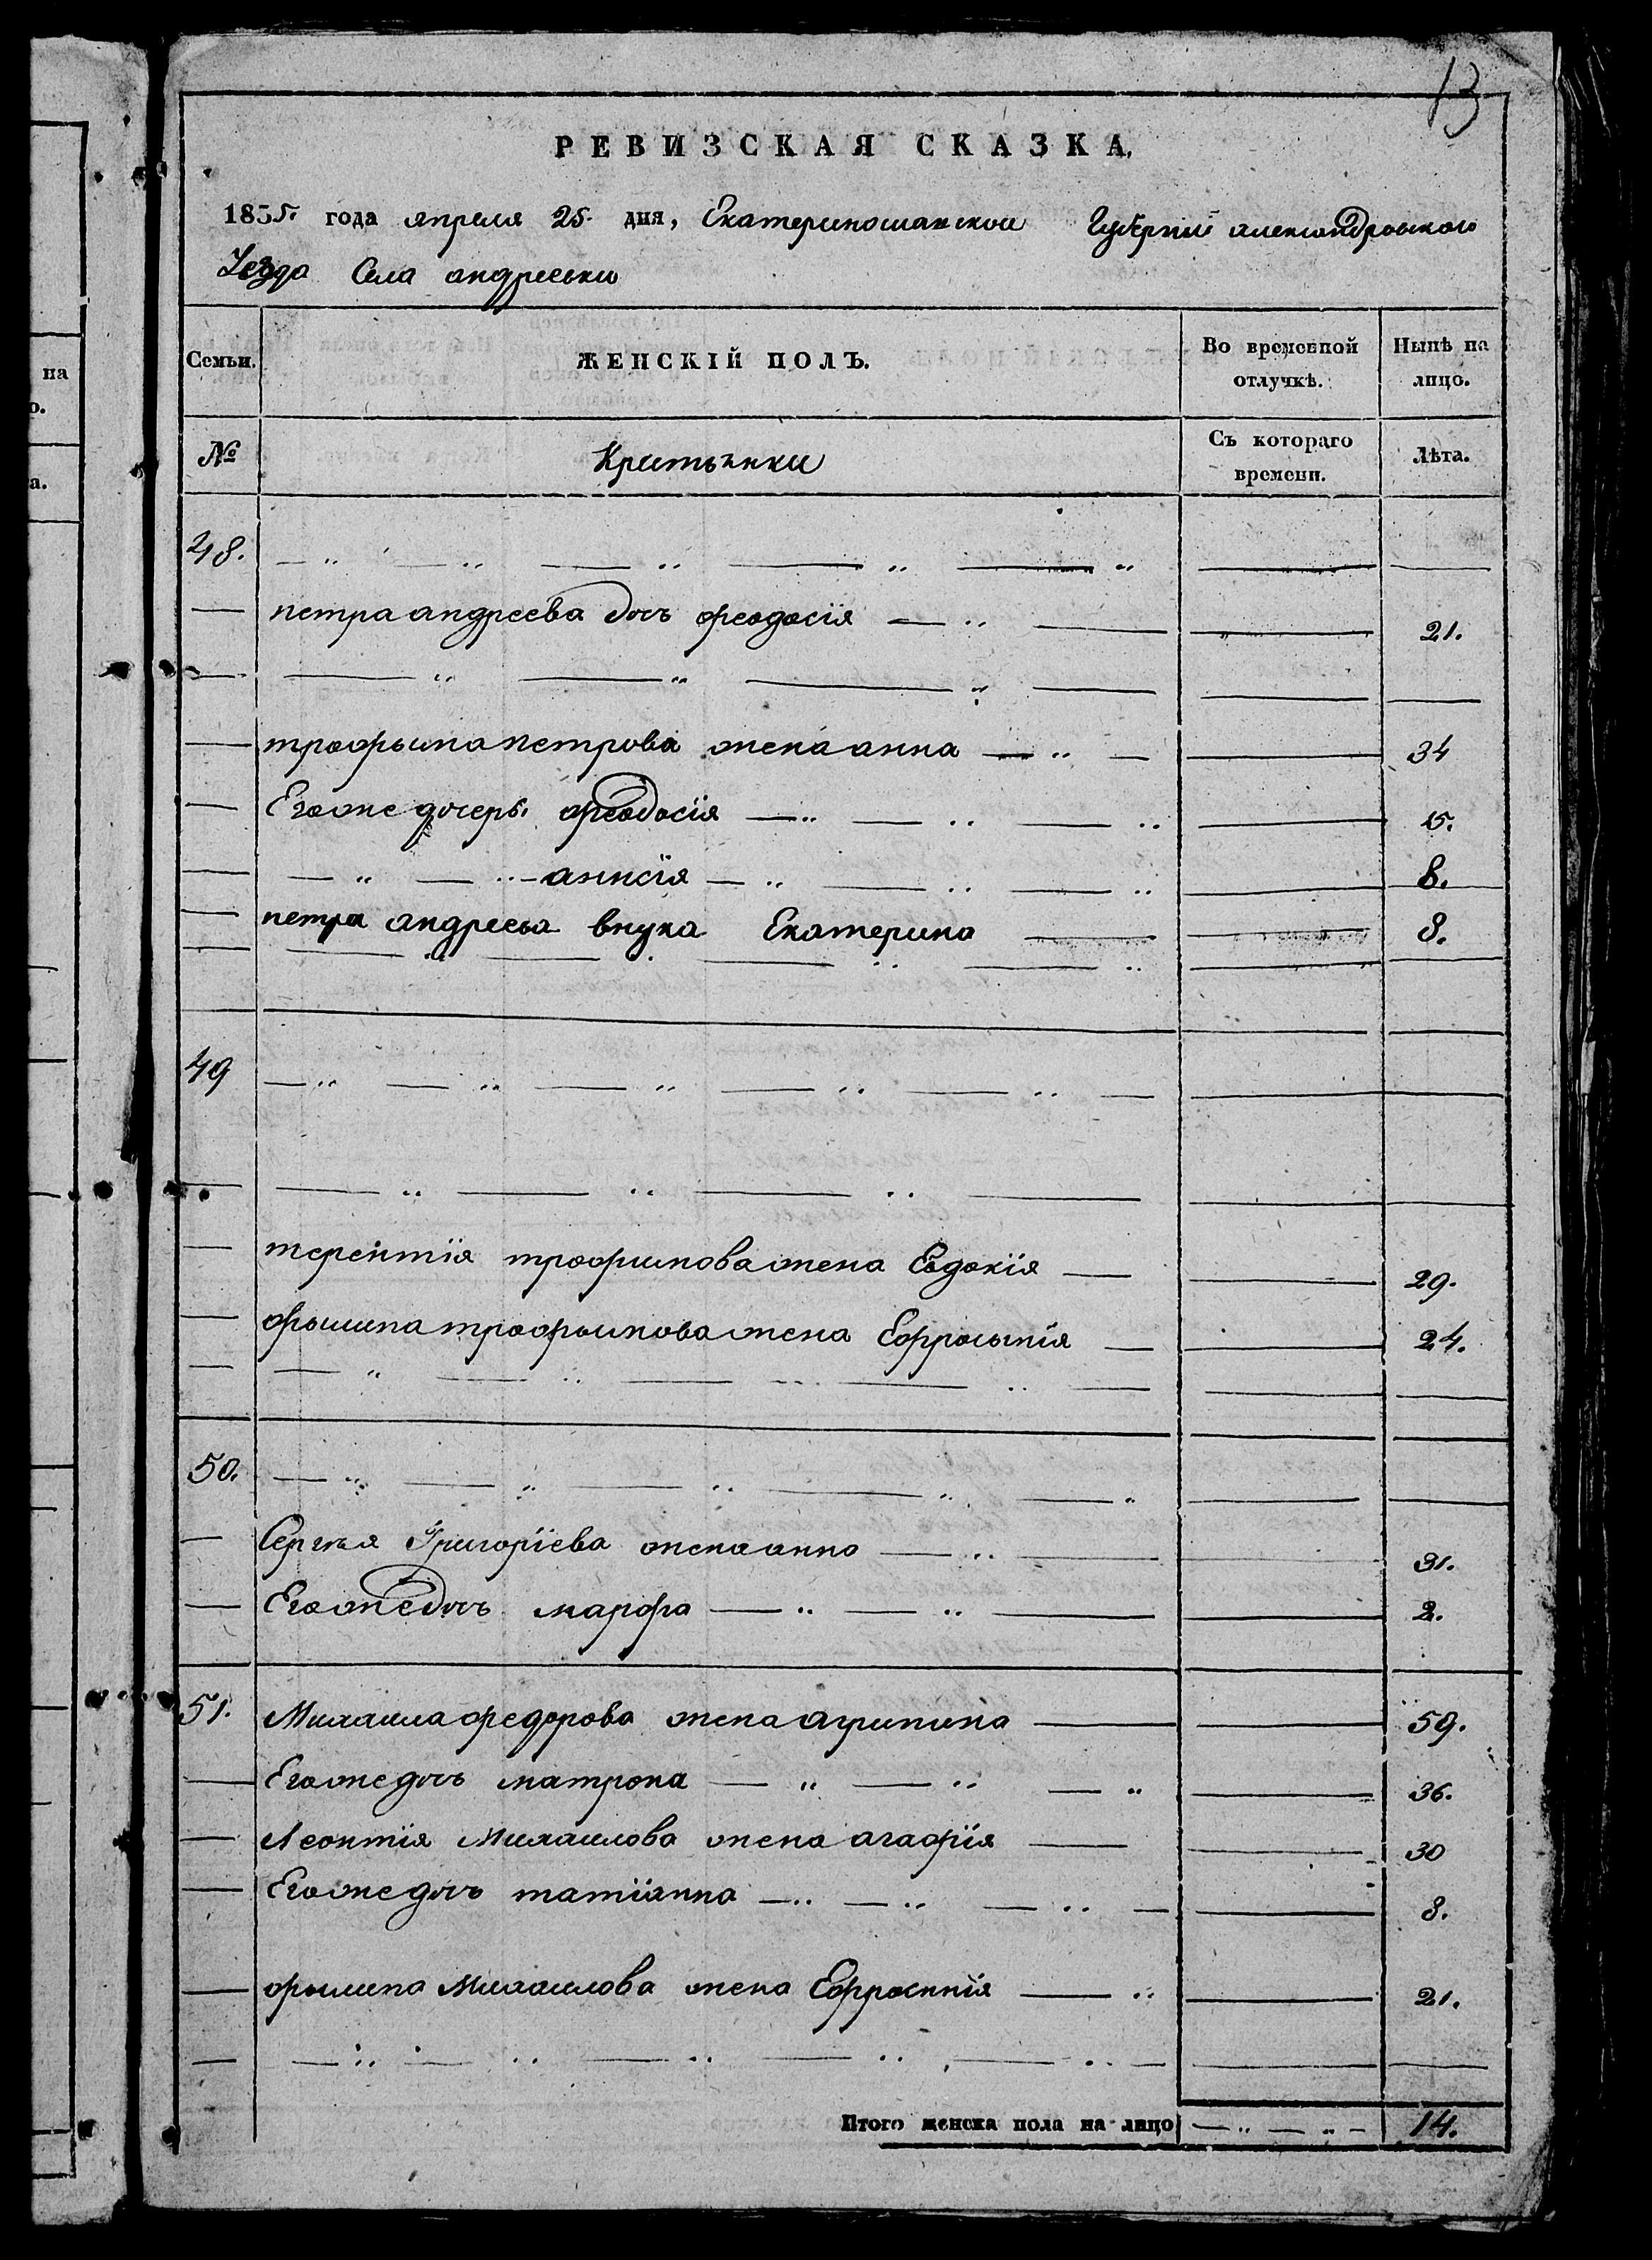 13
РЕВИЗСКАЯ СКАЗКА,
1835. года апреля 25. дня, Екатериношавской Губернии александровского
Уезда Села андреевки
Семьи. ЖЕНСКІЙ ПОЛЪ. Во временной отлучкѣ. Нынѣ на лицо.
№ Кретьянки Съ котораго времени. Лѣта.
48.
петра андреева дочъ феодосія 21.
трофыма петрова жена анна 34
Егоже дочеры феодосія 15.
аннсія 8.
петра андреева внука Екатерина 8.
49
терентія трофимова жена Евдокія 29.
фылипа трофымова жена Ефросынія 24.
50.
Сергѣя Григоріева жена анна 31.
Егоже дочъ марфа 2.
51. Михаила федорова жена агрипина 59.
Егоже дочъ матрона 36.
Леонтія Михаилова жена агафія 30
Егоже дочъ татіанна 8.
фылипа Михаилова жена Ефроснія 21.
Итого женска пола на лицо 14.
на
о.
а.